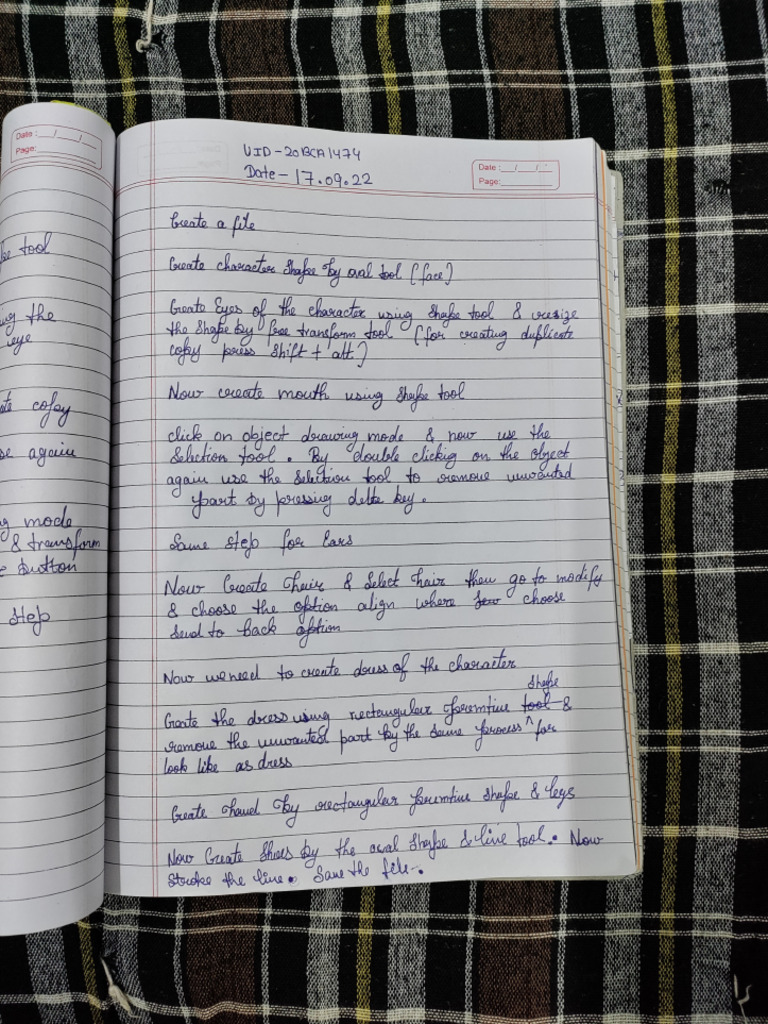 Date : __/__/__
Page:
pe tool
ng the
eye
ate copy
se again
g mode
& transform
e button
step
UID-20BCA1474
Date-17.09.22
Date : __/__/__
Page:
Create a file
Create character shape by oval tool (face)
Create Eyes of the character using shape tool & resize
the shape by free transform tool (for creating duplicate
copy press shift + alt.)
Now create mouth using shape tool
click on object drawing mode & now use the
Selection tool. By double clicking on the object
again use the selection tool to remove unwanted
part by pressing delta key.
Same step for Ears
Now Create hair & select hair then go to modify
& choose the option align where choose
send to back option
Now we need to create dress of the character
shape
Create the dress using rectangular premtive tool &
remove the unwanted part by the same process ^ for
look like as dress
Create hand by rectangular premtive shape & legs
Now Create Shoes by the oval shape & line tool. Now
stroke the line. Save the file.